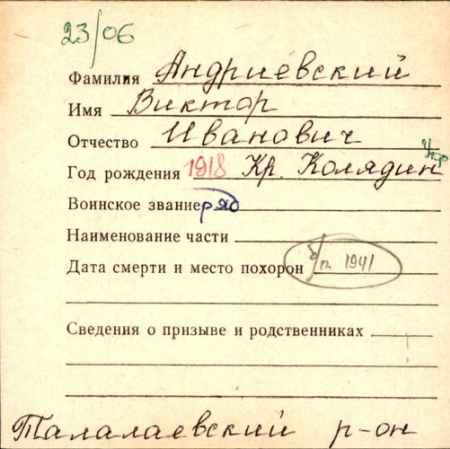 23/06
Фамилия Андриевский
Имя Виктор
Отчество Иванович
Год рождения 1918 Кр. Колядин
Воинское звание ряд
Наименование части
Дата смерти и место похорон б/п. 1941
Сведения о призыве и родственниках
Талалаевский р-он